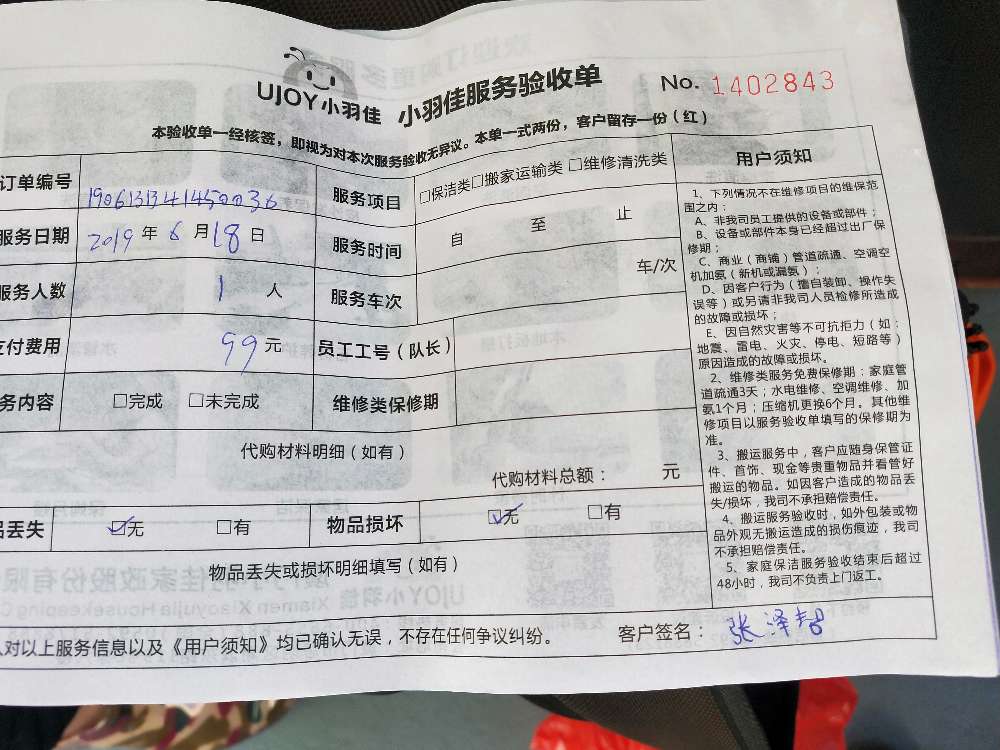 UJOY小羽佳 小羽佳服务验收单 No. 1402843
本验收单一经核签，即视为对本次服务验收无异议。本单一式两份，客户留存一份（红）
订单编号 1906131341450036 服务项目 □保洁类□搬家运输类 □维修清洗类
服务日期 2019 年 6 月 18 日 服务时间 自 至 止
服务人数 1 人 服务车次 车/次
支付费用 99 元 员工工号（队长）
务内容 □完成 □未完成 维修类保修期
代购材料明细（如有）
代购材料总额： 元
品丢失 ☑无 □有 物品损坏 ☑无 □有
物品丢失或损坏明细填写（如有）
用户须知
1、下列情况不在维修项目的维保范
围之内：
A、非我司员工提供的设备或部件；
B、设备或部件本身已经超过出厂保
修期；
C、商业（商铺）管道疏通、空调空
机加氨（新机或漏氨）；
D、因客户行为（擅自装卸、操作失
误等）或另请非我司人员检修所造成
的故障或损坏；
E、因自然灾害等不可抗拒力（如：
地震、雷电、火灾、停电、短路等）
原因造成的故障或损坏。
2、维修类服务免费保修期：家庭管
道疏通3天；水电维修、空调维修、加
氨1个月；压缩机更换6个月。其他维
修项目以服务验收单填写的保修期为
准。
3、搬运服务中，客户应随身保管证
件、首饰、现金等贵重物品并看管好
搬运的物品。如因客户造成的物品丢
失/损坏，我司不承担赔偿责任。
4、搬运服务验收时，如外包装或物
品外观无搬运造成的损伤痕迹，我司
不承担赔偿责任。
5、家庭保洁服务验收结束后超过
48小时，我司不负责上门返工。
对以上服务信息以及《用户须知》均已确认无误，不存在任何争议纠纷。 客户签名：张泽